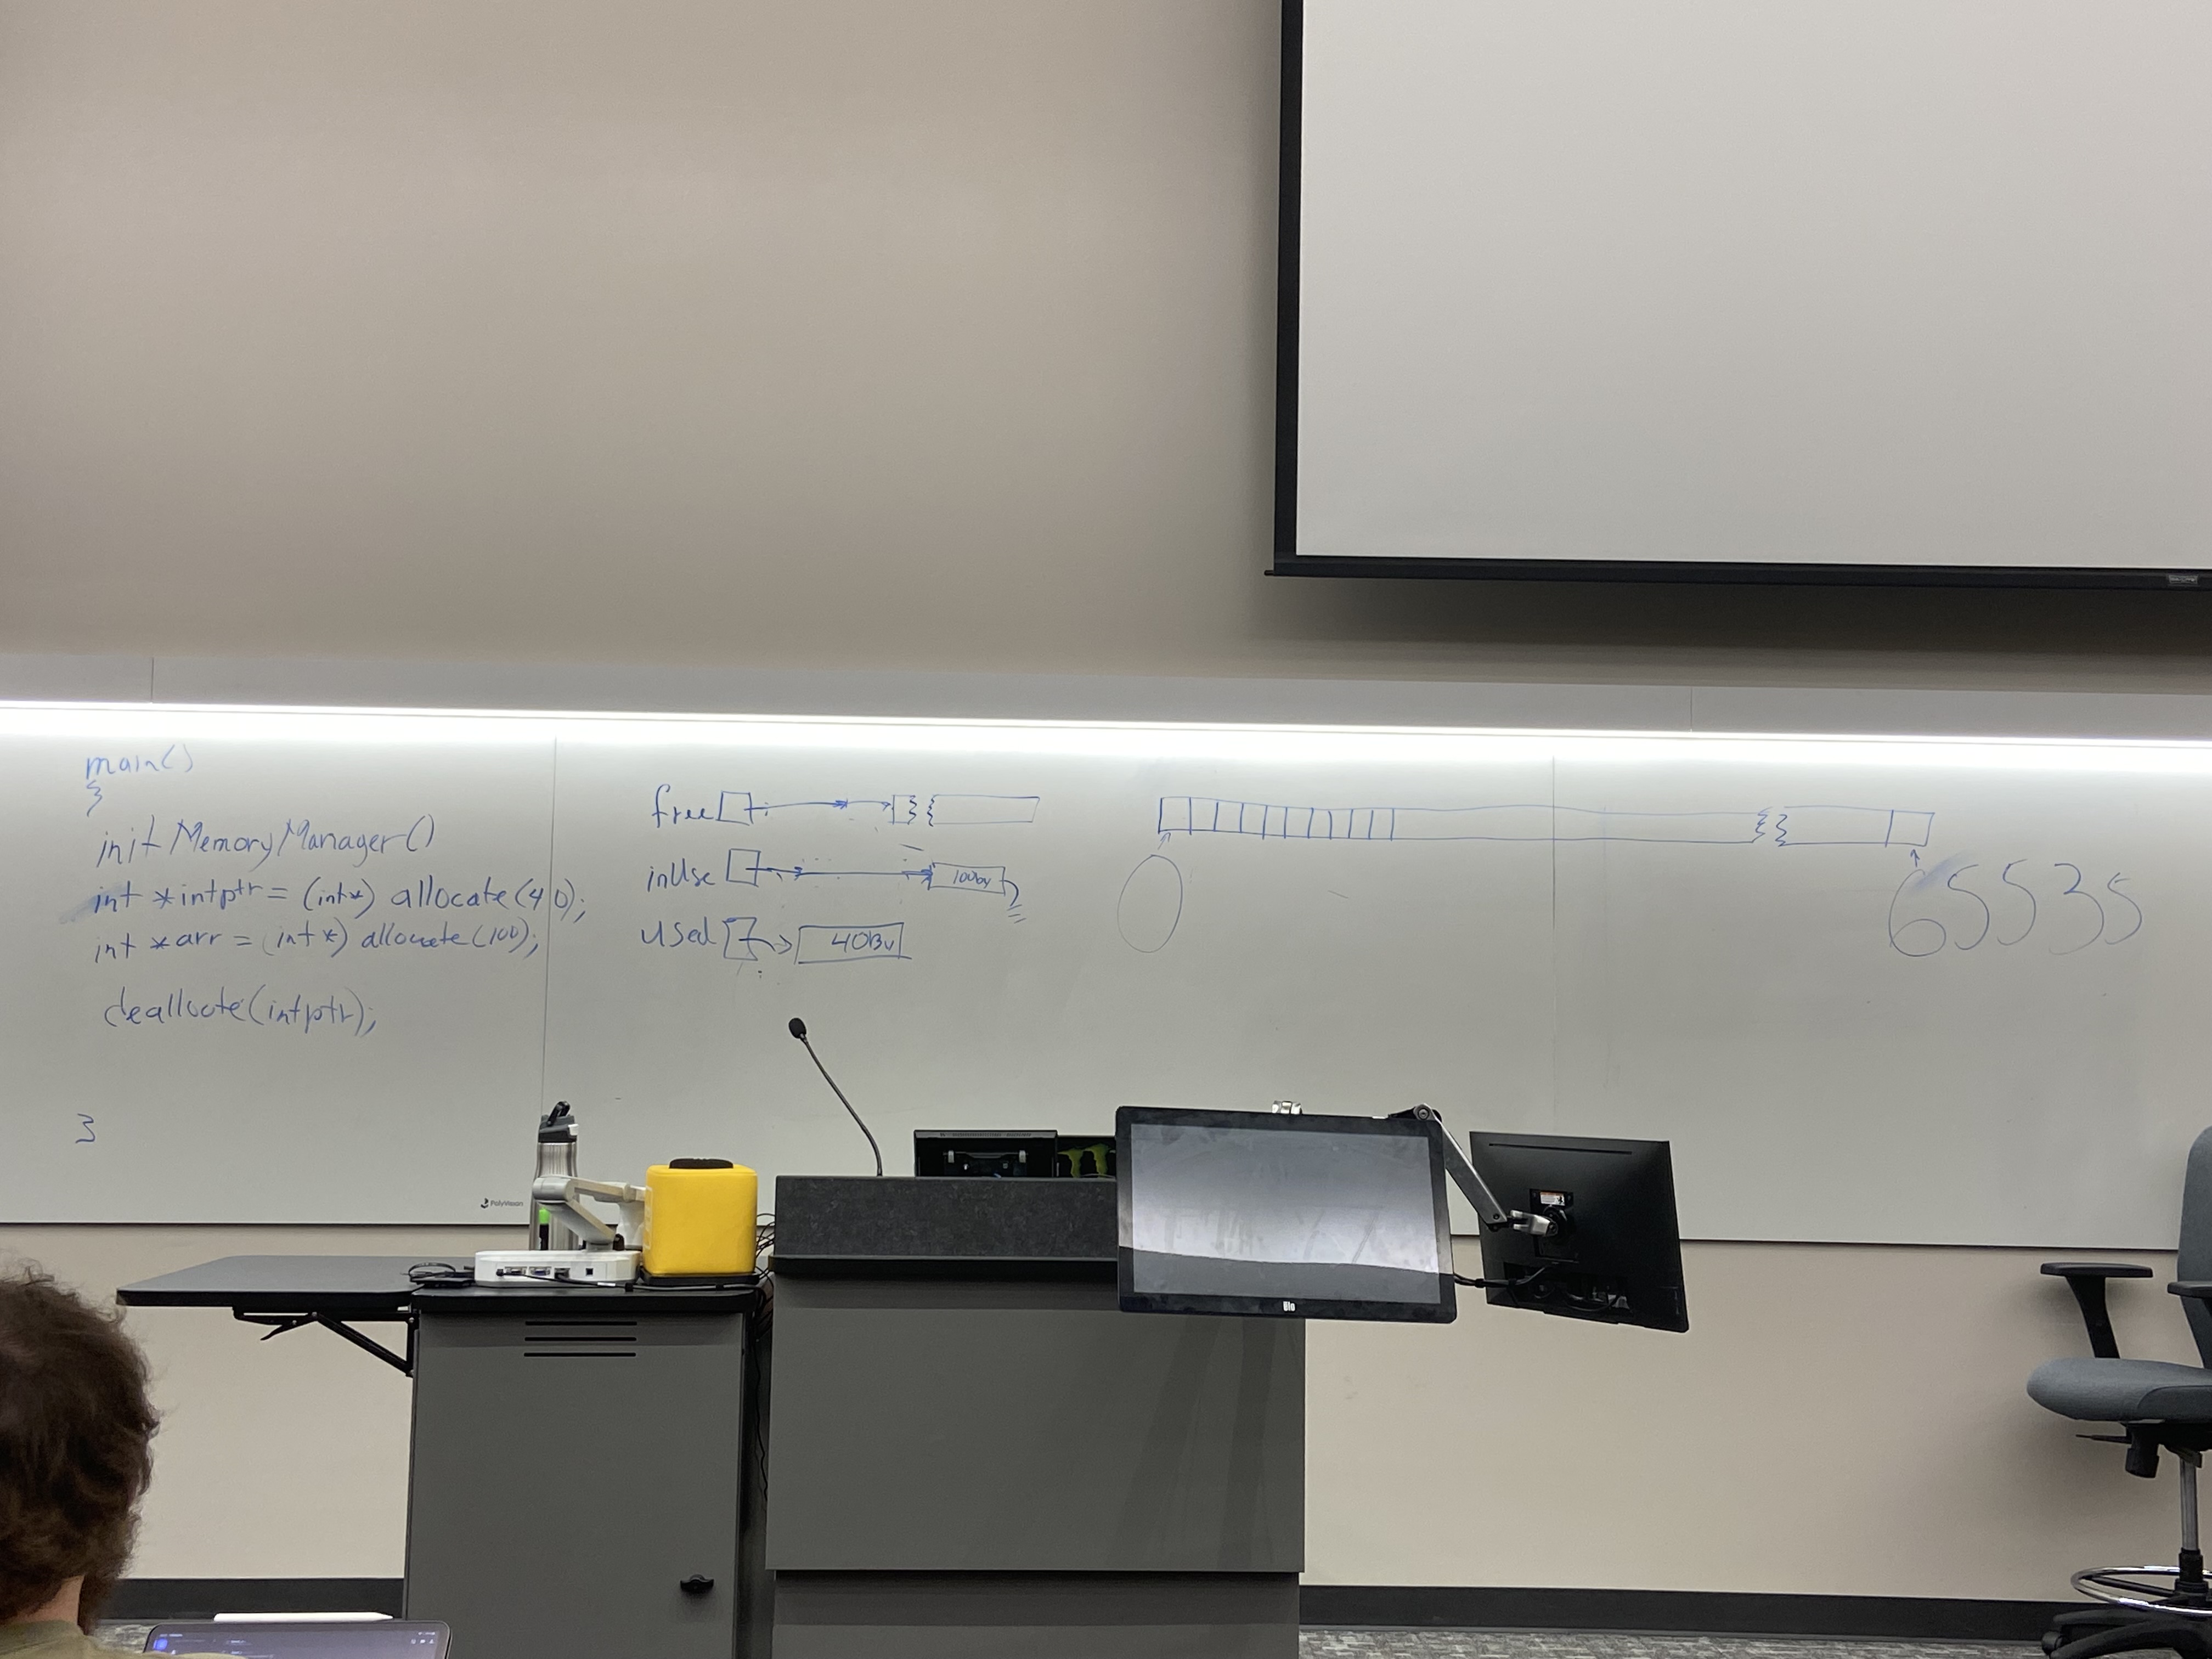 main()
{
initMemoryManager()
int *intptr = (int*) allocate(40);
int *arr = (int*) allocate(100);
deallocte(intptr);
}
free
inUse
100by
used
40By
0
65535
PolyVision
elo